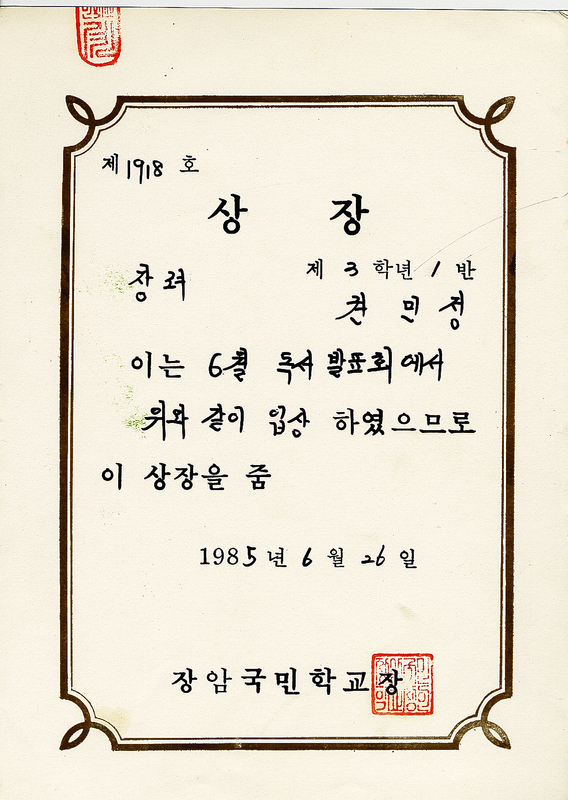 제 1918 호
상 장
장려
제 3 학년 1 반
권 민 정
이는 6월 독서 발표회에서
위와 같이 입상 하였으므로
이 상장을 줌
1985 년 6 월 26 일
장암국민학교장